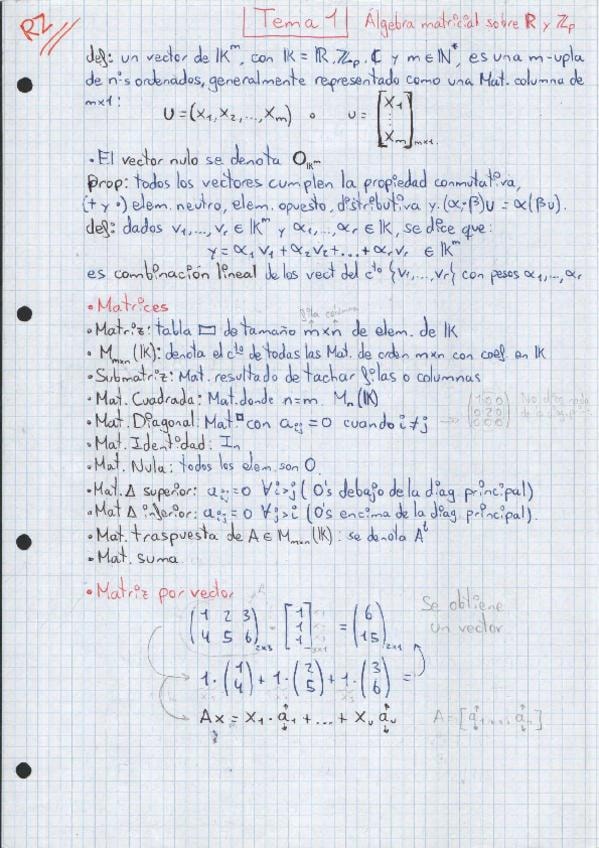 RZ
Tema 1 Álgebra matricial sobre ℝ y ℤp
def: un vector de 𝕂^m, con 𝕂 = ℝ, ℤp, ℂ y m ∈ ℕ*, es una m-upla
de nºs ordenados, generalmente representado como una Mat. columna de
m×1: U = (x₁, x₂, ..., xₘ) o u = [x₁ ⋮ xₘ]m×1.
• El vector nulo se denota O𝕂^m
Prop: todos los vectores cumplen la propiedad conmutativa,
(+ y ·) elem. neutro, elem. opuesto, distributiva y (α·β)u = α(βu).
def: dados v₁, ..., vᵣ ∈ 𝕂^m y α₁, ..., αᵣ ∈ 𝕂, se dice que:
y = α₁v₁ + α₂v₂ + ... + αᵣvᵣ ∈ 𝕂^m
es combinación lineal de los vect del cto {v₁, ..., vᵣ} con pesos α₁, ..., αᵣ
• Matrices
fila columna
• Matriz: tabla ▭ de tamaño m×n de elem. de 𝕂
• Mm×n(𝕂): denota el cto de todas las Mat. de orden m×n con coef. en 𝕂
• Submatriz: Mat. resultado de tachar filas o columnas
• Mat. Cuadrada: Mat. donde n=m. Mn(𝕂)
• Mat. Diagonal: Mat□ con aij = 0 cuando i≠j → (1 0 0 / 0 2 0 / 0 0 0)
• Mat. Identidad: In
• Mat. Nula: todos los elem. son 0.
• Mat. Δ superior: aij = 0 ∀i>j (0's debajo de la diag. principal)
• Mat Δ inferior: aij = 0 ∀j>i (0's encima de la diag. principal).
• Mat. traspuesta de A ∈ Mm×n(𝕂): se denota A^t
• Mat. suma.
• Matriz por vector
(1 2 3 / 4 5 6)2×3 · [1 / 1 / 1]3×1 = (6 / 15)2×1
Se obtiene
un vector
1·(1 / 4) + 1·(2 / 5) + 1·(3 / 6) =
Ax = x₁·a₁ + ... + xₙ aₙ A = [a₁, ..., aₙ]